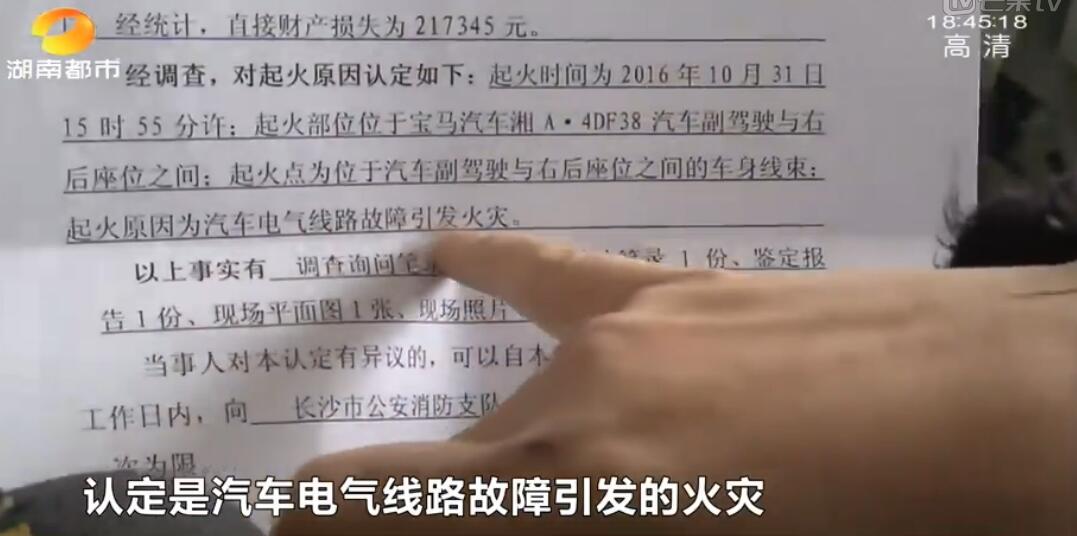 芒果TV
18:45:18
高清
湖南都市
经统计，直接财产损失为 217345 元。
经调查，对起火原因认定如下：起火时间为 2016 年 10 月 31 日
15 时 55 分许；起火部位位于宝马汽车湘 A·4DF38 汽车副驾驶与右
后座位之间；起火点为位于汽车副驾驶与右后座位之间的车身线束；
起火原因为汽车电气线路故障引发火灾。
以上事实有 调查询问笔 录 1 份、鉴定报
告 1 份、现场平面图 1 张、现场照片
当事人对本认定有异议的，可以自本
工作日内，向 长沙市公安消防支队
次为限
认定是汽车电气线路故障引发的火灾